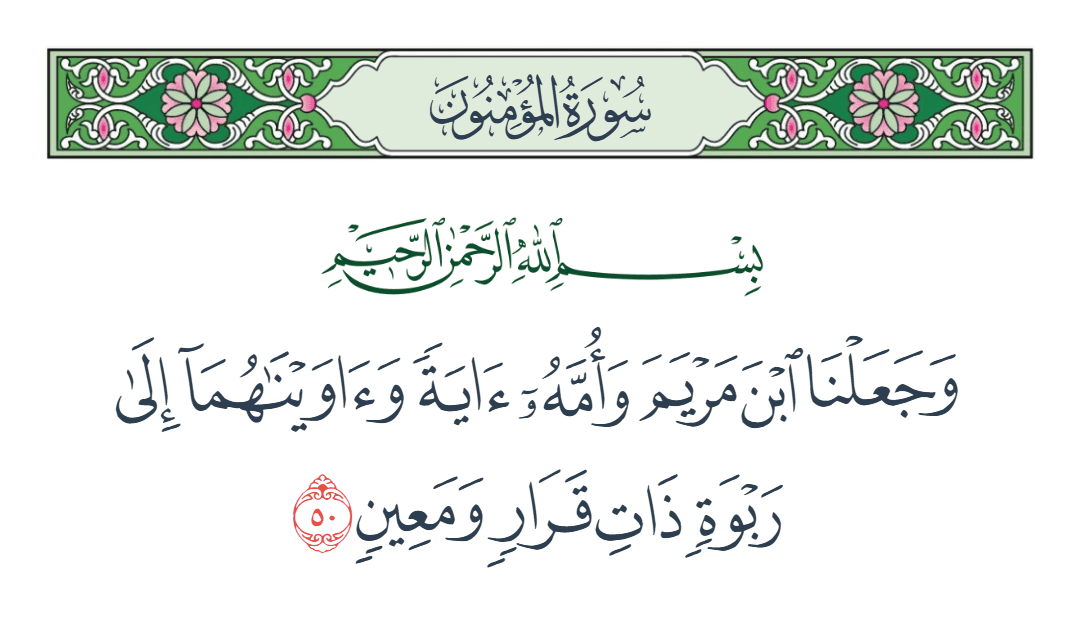 سُورَةُ الْمُؤْمِنُونَ
بِسْمِ ٱللَّهِ ٱلرَّحْمَٰنِ ٱلرَّحِيمِ
وَجَعَلْنَا ٱبْنَ مَرْيَمَ وَأُمَّهُۥٓ ءَايَةً وَءَاوَيْنَٰهُمَآ إِلَىٰ
رَبْوَةٍ ذَاتِ قَرَارٍ وَمَعِينٍ ٥٠